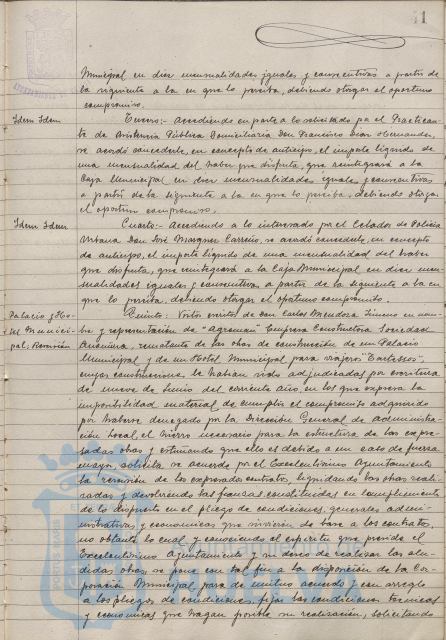 11
Municipal en diez mensualidades iguales y consecutivas a partir de
la siguiente a la en que lo perciba, debiendo otorgar el oportuno
compromiso.
Idem Idem
Tercero:- Accediendo en parte a lo solicitado por el Practican-
te de Asistencia Pública Domiciliaria Don Francisco Díaz Hernández,
se acordó concederle, en concepto de anticipo, el importe líquido de
una mensualidad del haber que disfruta, que reintegrará a la
Caja Municipal en diez mensualidades iguales y consecutivas
a partir de la siguiente a la en que lo perciba, debiendo otorgar
el oportuno compromiso.
Idem Idem
Cuarto:- Accediendo a lo interesado por el Celador de Policía
Urbana Don José Márquez Carreño, se acordó concederle, en concepto
de anticipo, el importe líquido de una mensualidad del haber
que disfruta, que reintegrará a la Caja Municipal en diez men-
sualidades iguales y consecutivas a partir de la siguiente a la en
que lo perciba, debiendo otorgar el oportuno compromiso.
Palacio y Ho-
tel Munici-
pal; Rescisión
Quinto: Visto escrito de Don Carlos Mendoza Jimeno en nom-
bre y representación de "Agroman" Empresa Constructora Sociedad
Anónima, rematante de las obras de construcción de un Palacio
Municipal y de un Hotel Municipal para viajeros "Tartessos",
cuyas construcciones le habían sido adjudicadas por escritura
de nueve de Junio del corriente año, en los que expresa la
imposibilidad material de cumplir el compromiso adquirido
por haberse denegado por la Dirección General de Administra-
ción Local, el hierro necesario para la estructura de las expre-
sadas obras y estimando que ello es debido a un caso de fuerza
mayor, solicita se acuerde por el Excelentísimo Ayuntamiento
la rescisión de los expresados contratos, liquidando las obras reali-
zadas y devolviendo las fianzas constituidas en cumplimiento
de lo dispuesto en el pliego de condiciones generales admi-
nistrativas y económicas que sirvieron de base a los contratos,
no obstante lo cual y conociendo el espíritu que preside el
Excelentísimo Ayuntamiento y su deseo de realizar las alu-
didas obras, se pone con tal fin a la disposición de la Cor-
poración Municipal para de mutuo acuerdo y con arreglo
a los pliegos de condiciones, fijar las condiciones técnicas
y económicas que hagan posible su realización, solicitando